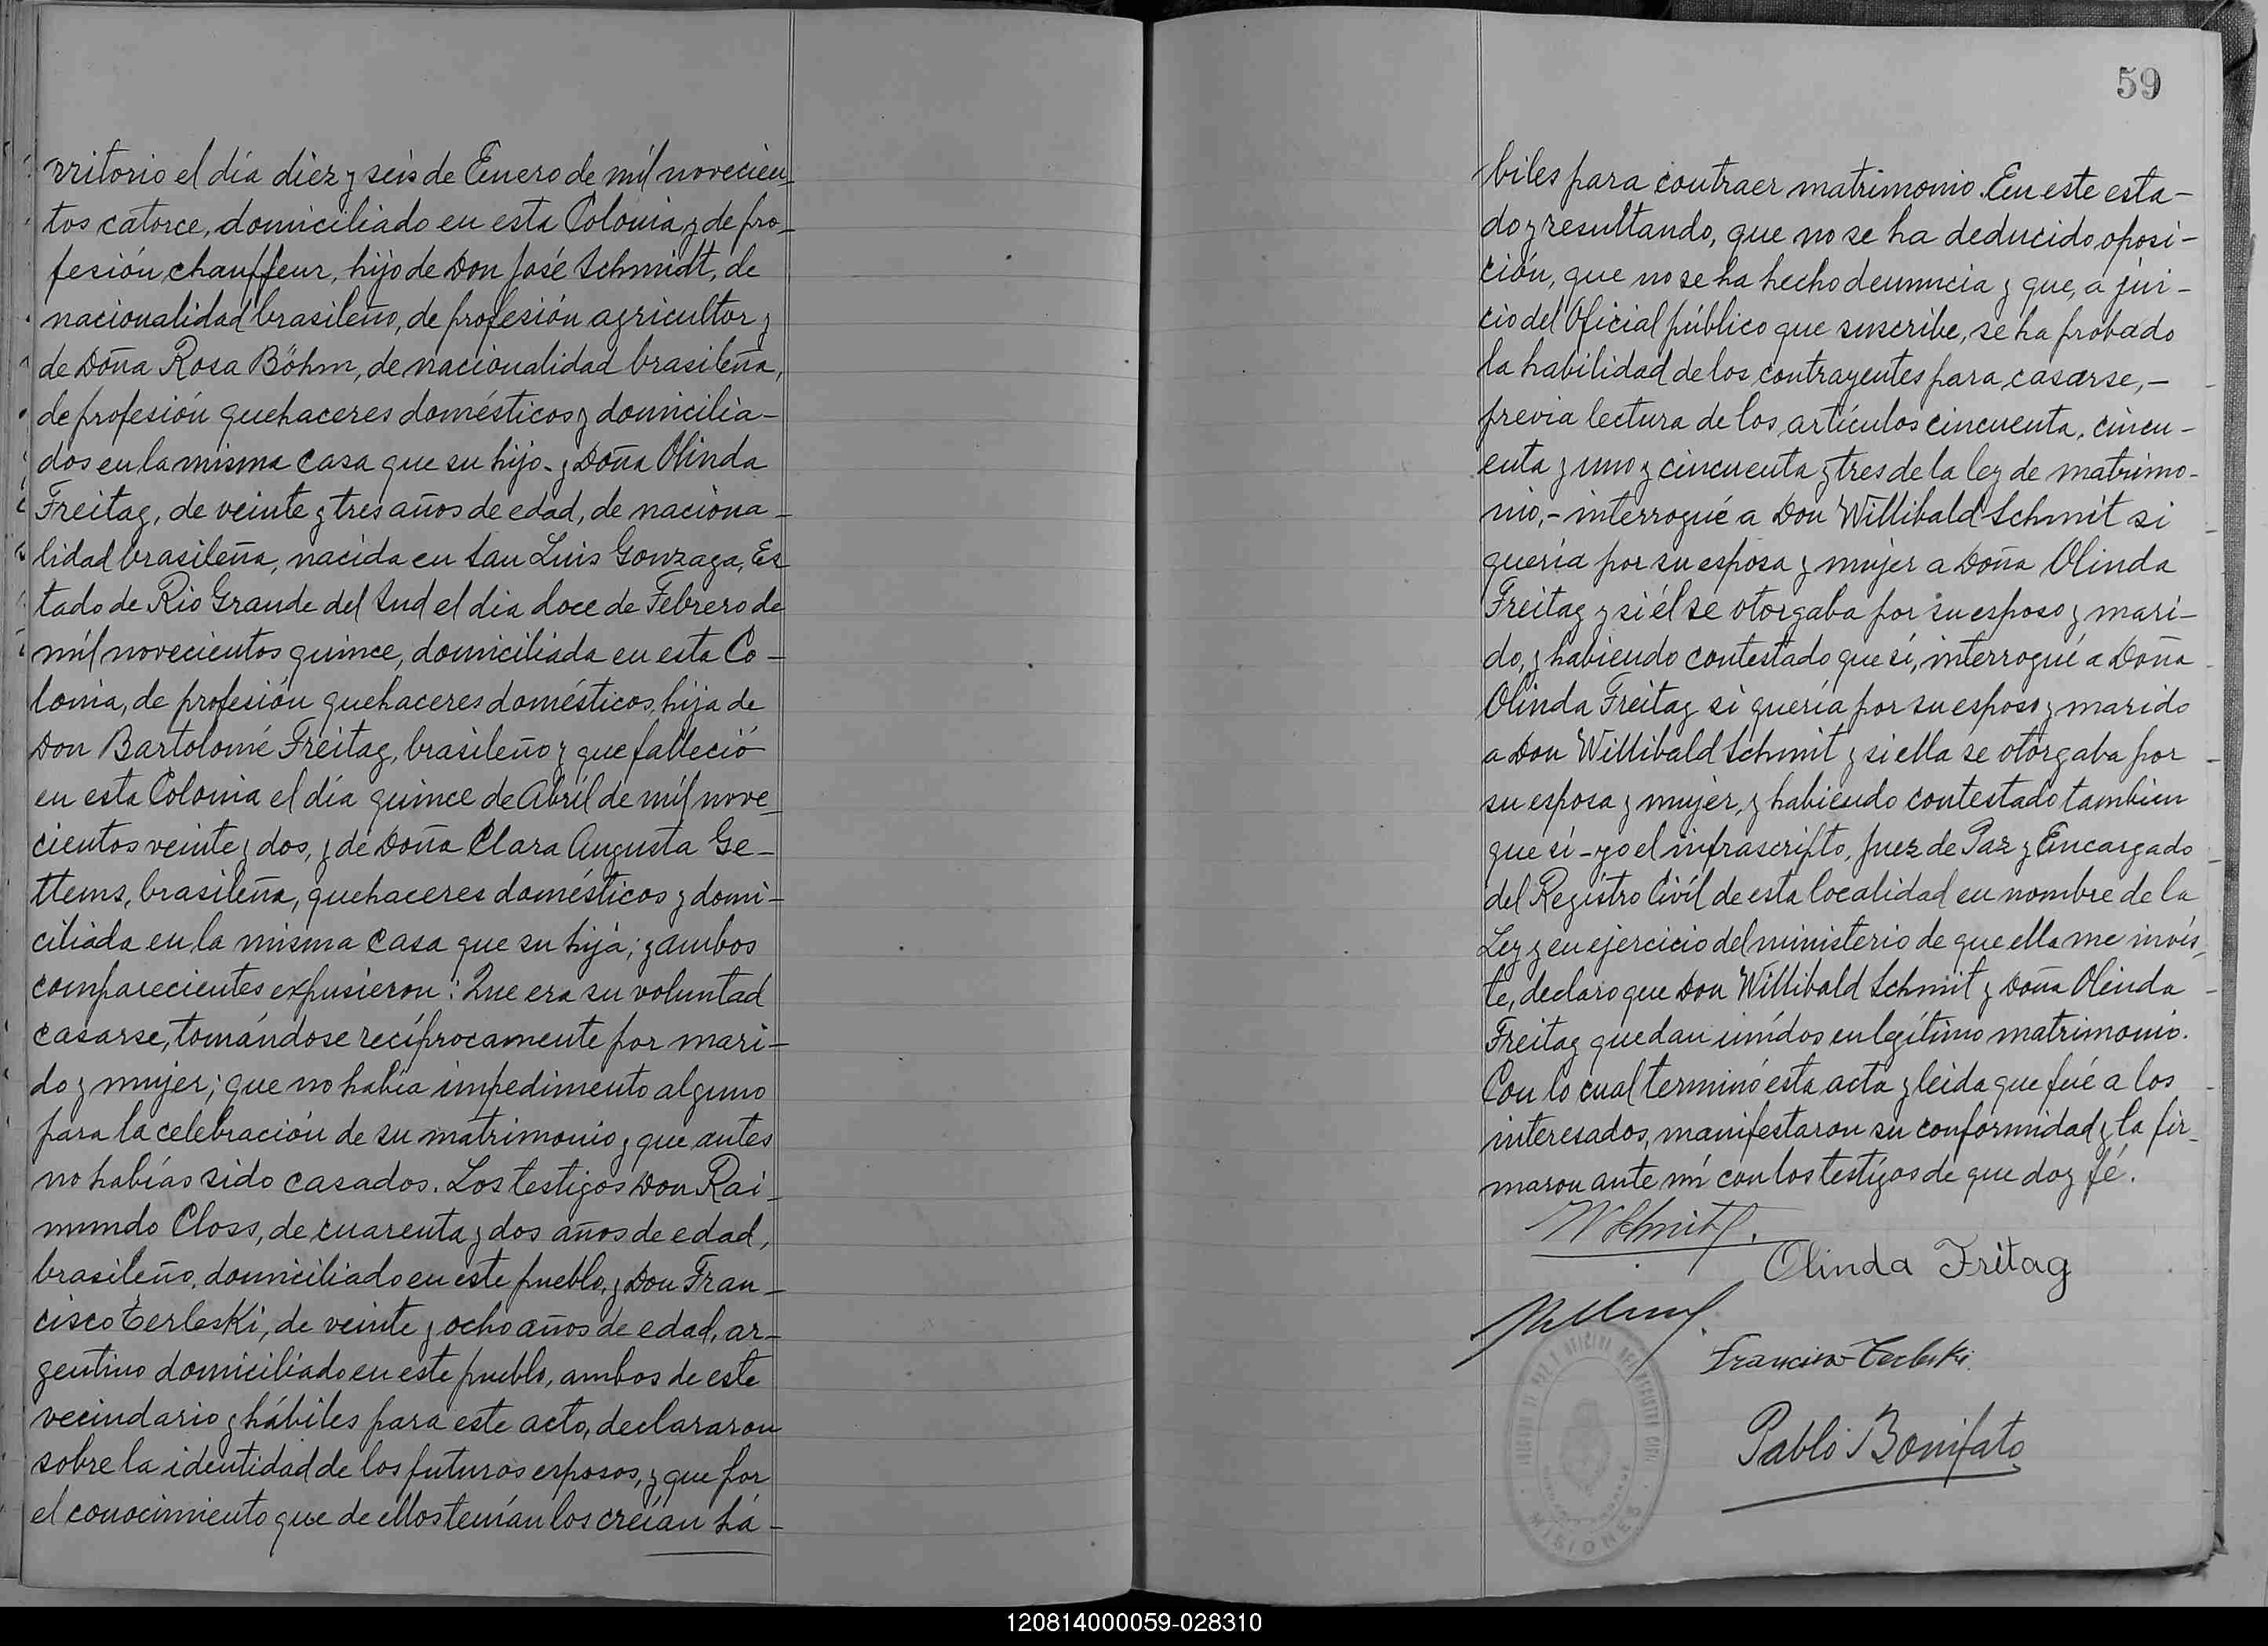 rritorio el día diez y seis de Enero de mil novecien-
tos catorce, domiciliado en esta Colonia y de pro-
fesión chauffeur, hijo de Don José Schmidt, de
nacionalidad brasileño, de profesión agricultor y
de Doña Rosa Böhm, de nacionalidad brasileña,
de profesión quehaceres domésticos y domicilia-
dos en la misma casa que su hijo - y Doña Olinda
Freitag, de veinte y tres años de edad, de naciona-
lidad brasileña, nacida en San Luis Gonzaga, Es-
tado de Rio Grande del Sud el dia doce de Febrero de
mil novecientos quince, domiciliada en esta Co-
lonia, de profesión quehaceres domésticos, hija de
Don Bartolomé Freitag, brasileño y que falleció
en esta Colonia el día quince de Abril de mil nove-
cientos veinte y dos, y de Doña Clara Augusta Ge-
ttems, brasileña, quehaceres domésticos y domi-
ciliada en la misma casa que su hija; y ambos
comparecientes expusieron: Que era su voluntad
casarse, tomándose recíprocamente por mari-
do y mujer; que no había impedimento alguno
para la celebración de su matrimonio y que antes
no habías sido casados. Los testigos Don Rai-
mundo Closs, de cuarenta y dos años de edad,
brasileño, domiciliado en este pueblo, y Don Fran-
cisco Terleski, de veinte y ocho años de edad, ar-
gentino domiciliado en este pueblo, ambos de este
vecindario y hábiles para este acto, declararon
sobre la identidad de los futuros esposos, y que por
el conocimiento que de ellos tenían los creían há-
59
biles para contraer matrimonio. En este esta-
do y resultando, que no se ha deducido oposi-
ción, que no se ha hecho denuncia y que, a jui-
cio del Oficial público que suscribe, se ha probado
la habilidad de los contrayentes para casarse, -
previa lectura de los artículos cincuenta, cincu-
enta y uno y cincuenta y tres de la ley de matrimo-
nio, - interrogué a Don Willibald Schmit si
quería por su esposa y mujer a Doña Olinda
Freitag y si él se otorgaba por su esposo y mari-
do, y habiendo contestado que sí, interrogué a Doña
Olinda Freitag si quería por su esposo y marido
a Don Willibald Schmit y si ella se otorgaba por
su esposa y mujer, y habiendo contestado tambien
que sí - yo el infrascripto, Juez de Paz y Encargado
del Registro Civil de esta localidad en nombre de la
Ley y en ejercicio del ministerio de que ella me invis-
te, declaro que Don Willibald Schmit y Doña Olinda
Freitag quedan unidos en legítimo matrimonio.
Con lo cual terminó esta acta y leida que fué a los
interesados, manifestaron su conformidad y la fir-
maron ante mí con los testigos de que doy fé.
W Schmit
Olinda Fritag
Francisco Terleski
Pablo Bonifato
MISIONES
120814000059-028310